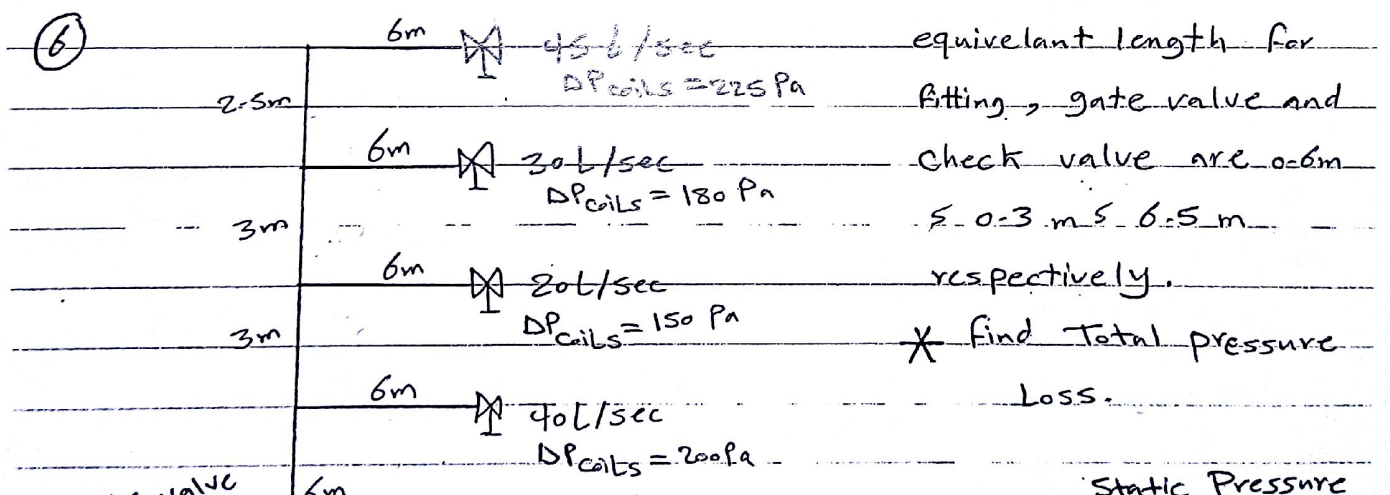 6
6m 45 L/sec
DP coils = 225 Pa
2.5m
6m 30 L/sec
DP coils = 180 Pa
3m
6m 20L/sec
DP coils = 150 Pa
3m
6m 40L/sec
DP coils = 200Pa
valve 6m
equivelant length for
fitting , gate valve and
check valve are 0.6m
5 0.3 m 5 6.5 m
respectively.
* find Total pressure
Loss.
Static Pressure